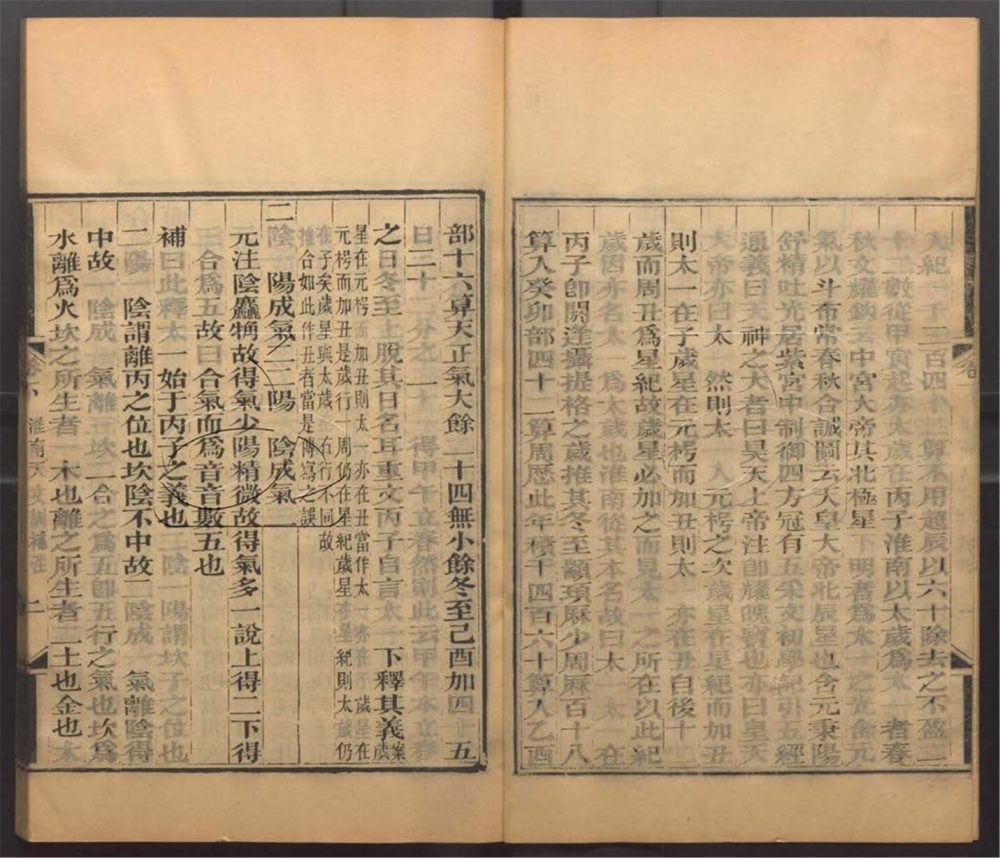 入紀一千三百四十二算不用超辰以六十除去之不盈二
十二數從甲寅起太歲在丙子淮南以太歲爲太一者春
秋文耀鉤云中宮大帝其北極星下明者爲太一之光含元
氣以斗布常春秋合誠圖云天皇大帝北辰星也含元秉陽
舒精吐光居紫宮中制御四方冠有五采文初學記引五經
通義曰天神之大者曰昊天上帝注卽耀魄寶也亦曰皇天
大帝亦曰太一然則太一入元枵之次歲星在星紀而加丑
則太一在子歲星在元枵而加丑則太一亦在丑自後十二
歲而周丑爲星紀故歲星必加之而見太一之所在以此紀
歲因亦名太一爲太歲也淮南從其本名故曰太一太一在
丙子卽閼逢攝提格之歲推其冬至顓頊厤少周厤百十八
算入癸卯部四十二算周厤此年積千四百六十算入乙酉
部十六算天正氣大餘二十四無小餘冬至己酉加四十五
日三十二分之二十一得甲午立春然則此云甲午本立春
之日冬至上脫其日名耳重文丙子自言太一下釋其義案歲
星在元枵而加丑則太一亦在丑當作太一亦在子歲星在
元枵而加丑是歲行一周仍在星紀歲星在星紀則太歲仍
在子矣歲星與太歲左右行不同故
推合如此作丑者當是傳寫之誤
二陰一陽成氣二二陽一陰成氣三
元注陰麤觕故得氣少陽精微故得氣多一說上得二下得
三合爲五故曰合氣而爲音音數五也
補曰此釋太一始于丙子之義也二陰一陽謂坎子之位也
二陽一陰謂離丙之位也坎陰不中故二陰成二氣離陰得
中故一陰成三氣離三坎二合之爲五卽五行之氣也坎爲
水離爲火坎之所生者一木也離之所生者二土也金也木
淮南天文訓補注
二